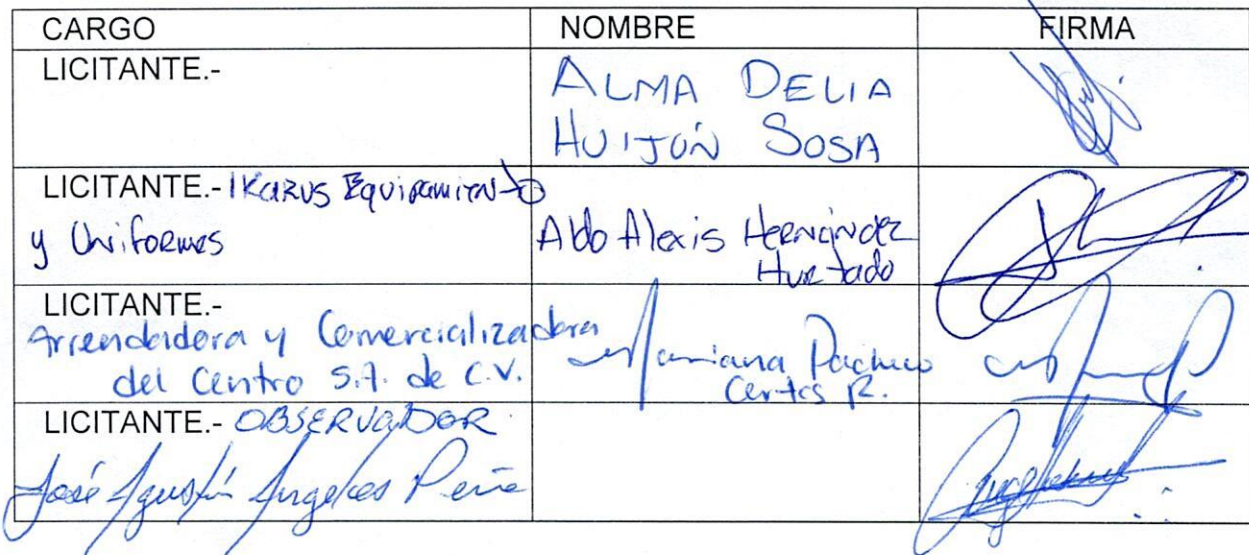 CARGO NOMBRE FIRMA
LICITANTE.- ALMA DELIA
HUIJÓN SOSA
LICITANTE.- IKARUS Equipamiento
y Uniformes Aldo Alexis Hernández
Hurtado
LICITANTE.-
Arrendadora y Comercializadora
del Centro S.A. de C.V. Mariana Pacheco
R.
LICITANTE.- OBSERVADOR
José Agustín Angeles Peña